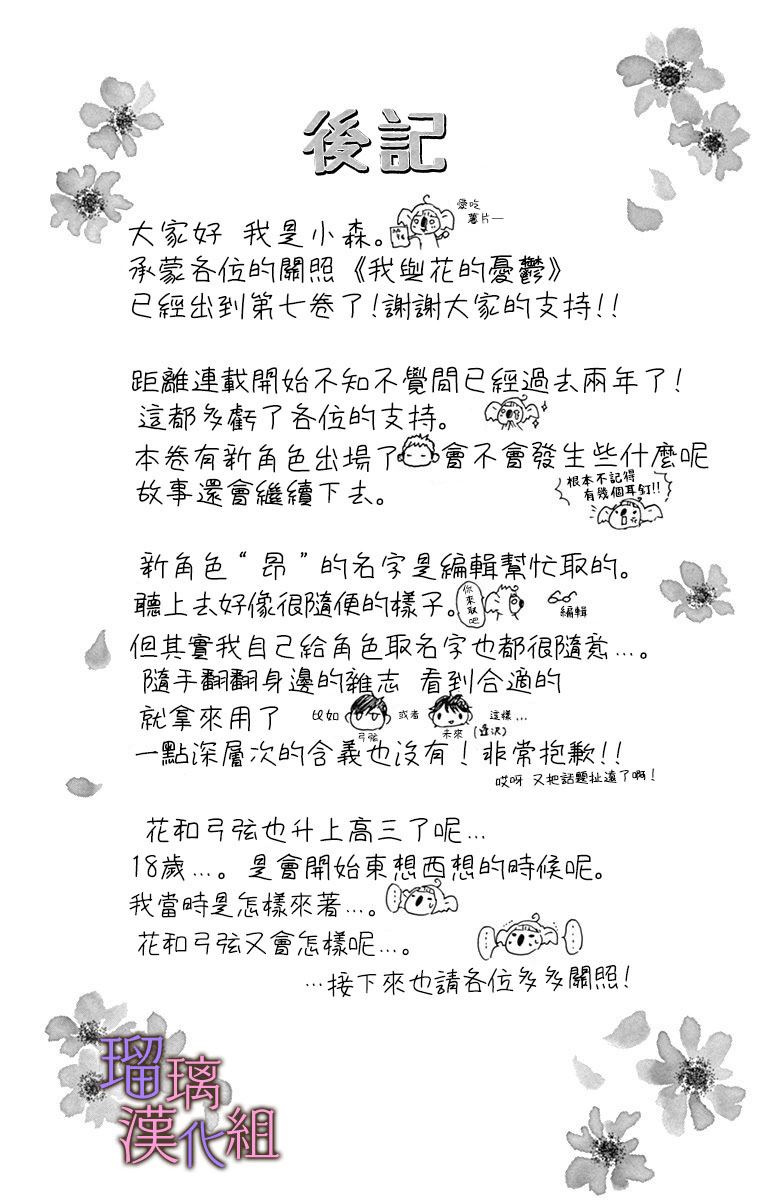 後記
大家好 我是小森。
愛吃
薯片—
承蒙各位的關照《我與花的憂鬱》
已經出到第七卷了!謝謝大家的支持!!
距離連載開始不知不覺間已經過去兩年了!
這都多虧了各位的支持。
本卷有新角色出場了 會不會發生些什麼呢
故事還會繼續下去。
根本不記得
有幾個耳釘!!
新角色“昂”的名字是編輯幫忙取的。
聽上去好像很隨便的樣子。
你來取吧
編輯
但其實我自己給角色取名字也都很隨意...。
隨手翻翻身邊的雜志 看到合適的
就拿來用了 比如 或者 這樣...
弓弦
未來
一點深層次的含義也沒有!非常抱歉!!
哎呀 又把話題扯遠了啊!
花和弓弦也升上高三了呢...
18歲...。是會開始東想西想的時候呢。
我當時是怎樣來著...。
花和弓弦又會怎樣呢...。
...接下來也請各位多多關照!
瑠璃
漢化組